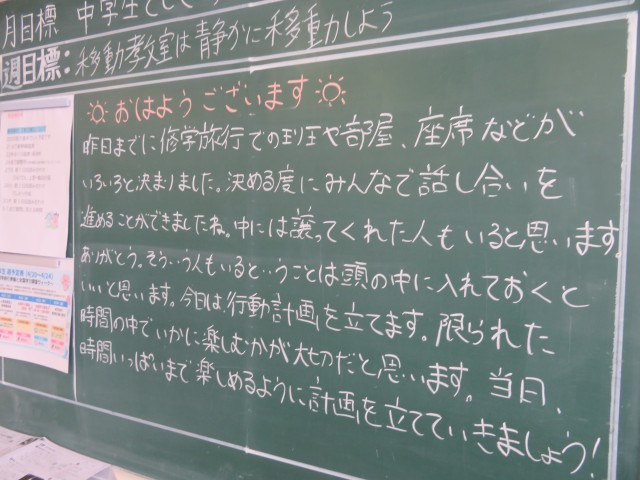 月目標 中学生として
週目標: 移動教室は静かに移動しよう
おはようございます
昨日までに修学旅行での班や部屋、座席などが
いろいろと決まりました。決める度にみんなで話し合いを
進めることができましたね。中には譲ってくれた人もいると思います。
ありがとう。そういう人もいるということは頭の中に入れておくと
いいと思います。今日は、行動計画を立てます。限られた
時間の中でいかに楽しむかが大切だと思います。当日、
時間いっぱいまで楽しめるように計画を立てていきましょう!